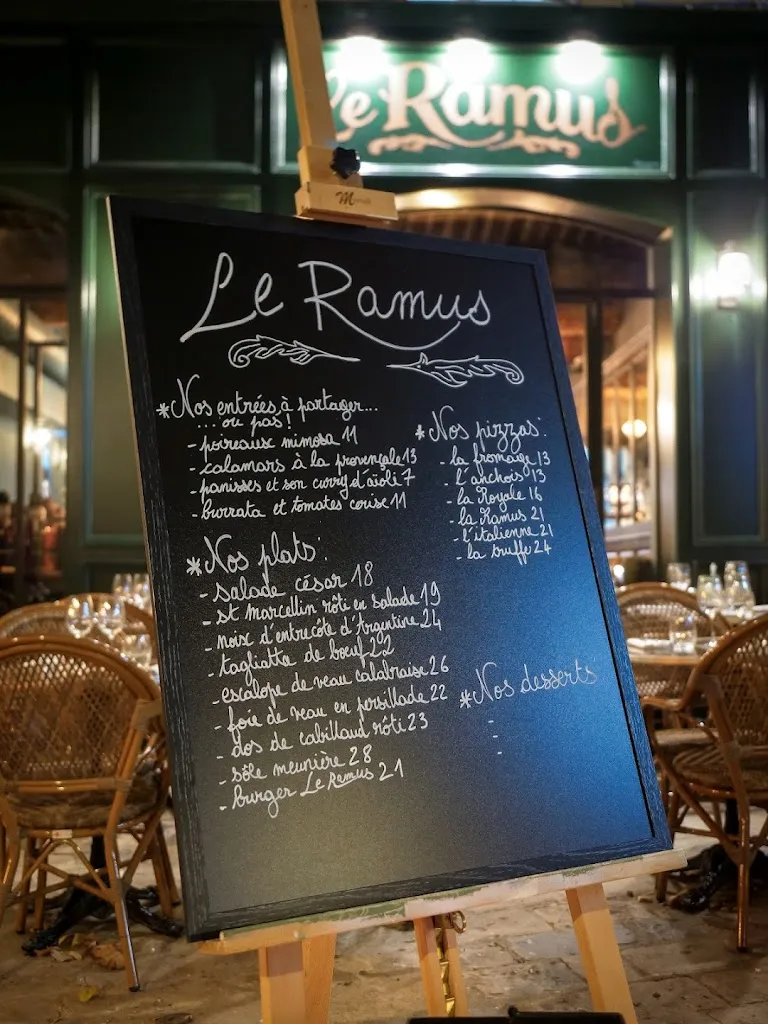 Le Ramus
Le Ramus
*Nos entrées, à partager...
... ou pas !
- poireaux mimosa 11
- calamars à la provençale 13
- panisses et son curry d'aïoli 7
- burrata et tomates cerise 11
*Nos plats:
- salade césar 18
- st marcellin rôti en salade 19
- noix d'entrecôte d'Argentine 24
- tagliatta de boeuf 22
- escalope de veau calabraise 26
- foie de veau en persillade 22
- dos de cabillaud rôti 23
- sôle meunière 28
- burger Le Ramus 21
*Nos pizzas:
- la fromage 13
- l'anchois 13
- la Royale 16
- la Ramus 21
- l'italienne 21
- la truffe 24
*Nos desserts
-
-
-